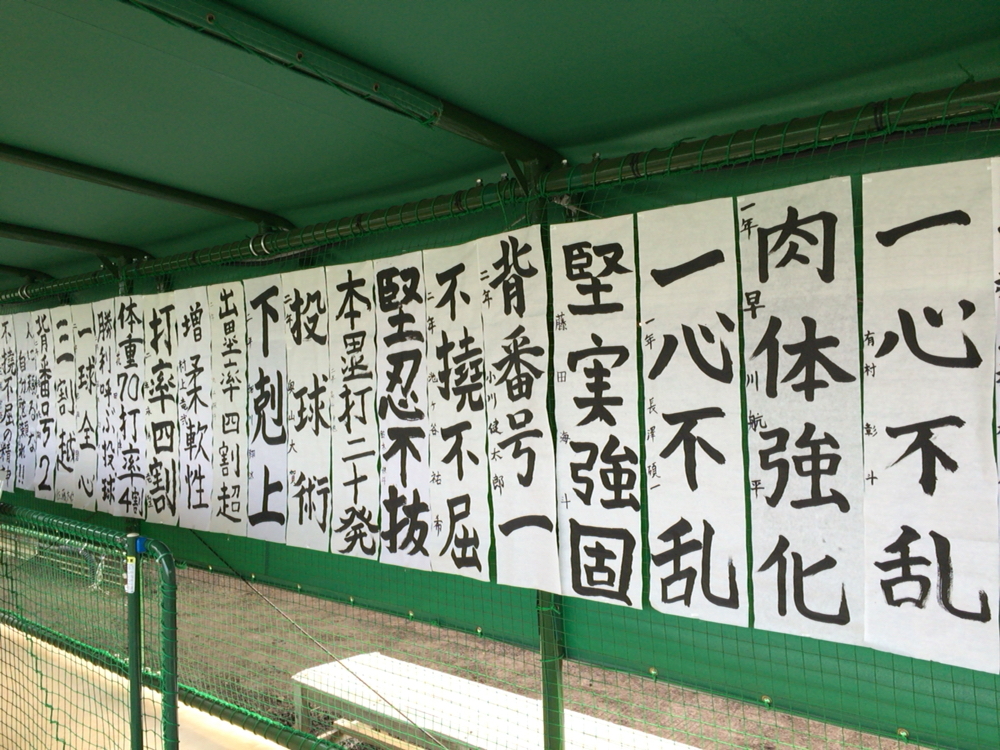 一心不乱
有村 彰斗
肉体強化
一年 早川 航平
一心不乱
一年 長澤 碩一
堅実強固
藤田 海斗
背番号一
二年 小川 健太郎
不撓不屈
二年 池ヶ谷 祐布
堅忍不抜
本塁打二十発
投球術
下剋上
出塁率四割超
増柔軟性
打率四割
体重70打率4割
勝利呼ぶ投球
一球全心
三割越
背番号2
不撓不屈の精神